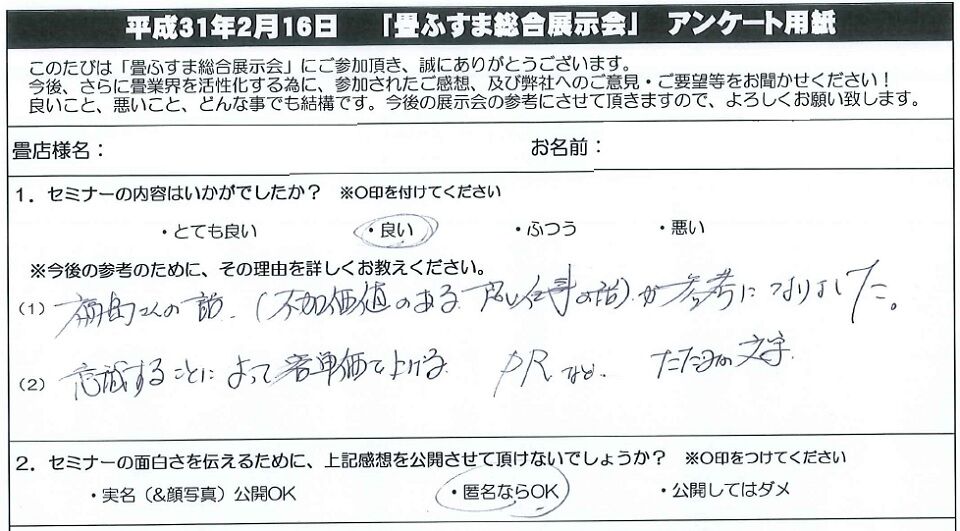 平成31年2月16日 「畳ふすま総合展示会」 アンケート用紙
このたびは「畳ふすま総合展示会」にご参加頂き、誠にありがとうございます。
今後、さらに畳業界を活性化する為に、参加されたご感想、及び弊社へのご意見・ご要望等をお聞かせください！
良いこと、悪いこと、どんな事でも結構です。今後の展示会の参考にさせて頂きますので、よろしくお願い致します。
畳店様名： お名前：
1．セミナーの内容はいかがでしたか？ ※〇印を付けてください
・とても良い ・良い ・ふつう ・悪い
※今後の参考のために、その理由を詳しくお教えください。
(1) 福島さんの話、(付加価値のある 仕事の話) が参考になりました。
(2) 意識することによって客単価を上げる PRなど、たたみの文字
2．セミナーの面白さを伝えるために、上記感想を公開させて頂けないでしょうか？ ※〇印をつけてください
・実名（＆顔写真）公開OK ・匿名ならOK ・公開してはダメ